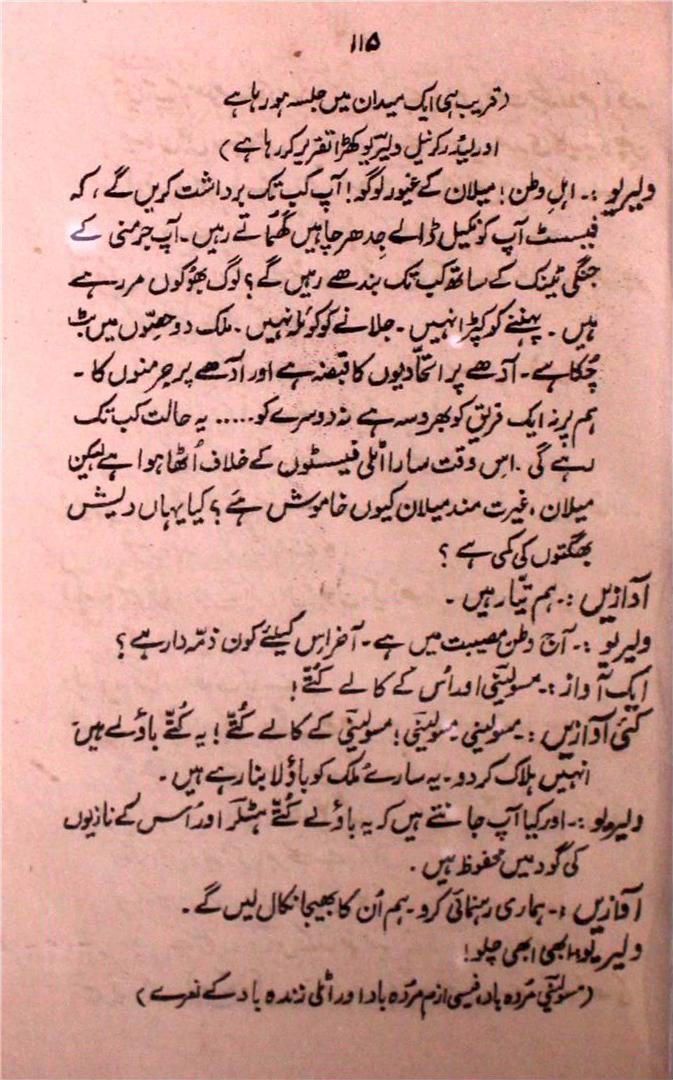 ۱۱۵
(قریب ہی ایک میدان میں جلسہ ہو رہا ہے
اور لیڈر کرنیل ولیریو کھڑا تقریر کر رہا ہے)
ولیریو :۔ اہلِ وطن! میلان کے غیور لوگو! آپ کب تک برداشت کریں گے، کہ
فیسسٹ آپ کو نکیل ڈالے جِدھر چاہیں گھُماتے رہیں۔ آپ جرمنی کے
جنگی ٹینک کے ساتھ کب تک بندھے رہیں گے؟ لوگ بھُوکوں مر رہے
ہیں۔ پہننے کو کپڑا نہیں۔ جلانے کو کوئلہ نہیں۔ ملک دو حصّوں میں بٹ
چُکا ہے۔ آدھے پر اتحّادیوں کا قبضہ ہے اور آدھے پر جرمنوں کا۔
ہم پر نہ ایک فریق کو بھروسہ ہے نہ دوسرے کو..... یہ حالت کب تک
رہے گی۔ اس وقت سارا اٹلی فیسسٹوں کے خلاف اُٹھا ہوا ہے لیکن
میلان، غیرت مند میلان کیوں خاموش ہے؟ کیا یہاں دیش
بھگتوں کی کمی ہے؟
آوازیں :۔ ہم تیّار ہیں۔
ولیریو :۔ آج وطن مصیبت میں ہے۔ آخر اس کیلئے کون ذمّہ دار ہے؟
ایک آواز :۔ مسولینی اور اُس کے کالے کُتّے!
کئی آوازیں :۔ مسولینی مسولینی! مسولینی کے کالے کُتّے! یہ کُتّے باؤلے ہیں
انہیں ہلاک کر دو۔ یہ سارے مُلک کو باؤلا بنا رہے ہیں۔
ولیریو :۔ اور کیا آپ جانتے ہیں کہ یہ باؤلے کُتّے ہٹلر اور اُس کے نازیوں
کی گود میں محفوظ ہیں۔
آوازیں :۔ ہماری رہنمائی کرو۔ ہم اُن کا بھیجا نکال لیں گے۔
ولیریو :۔ ابھی ابھی چلو!
(مسولینی مردہ باد، فیسی ازم مردہ باد اور اٹلی زندہ باد کے نعرے)